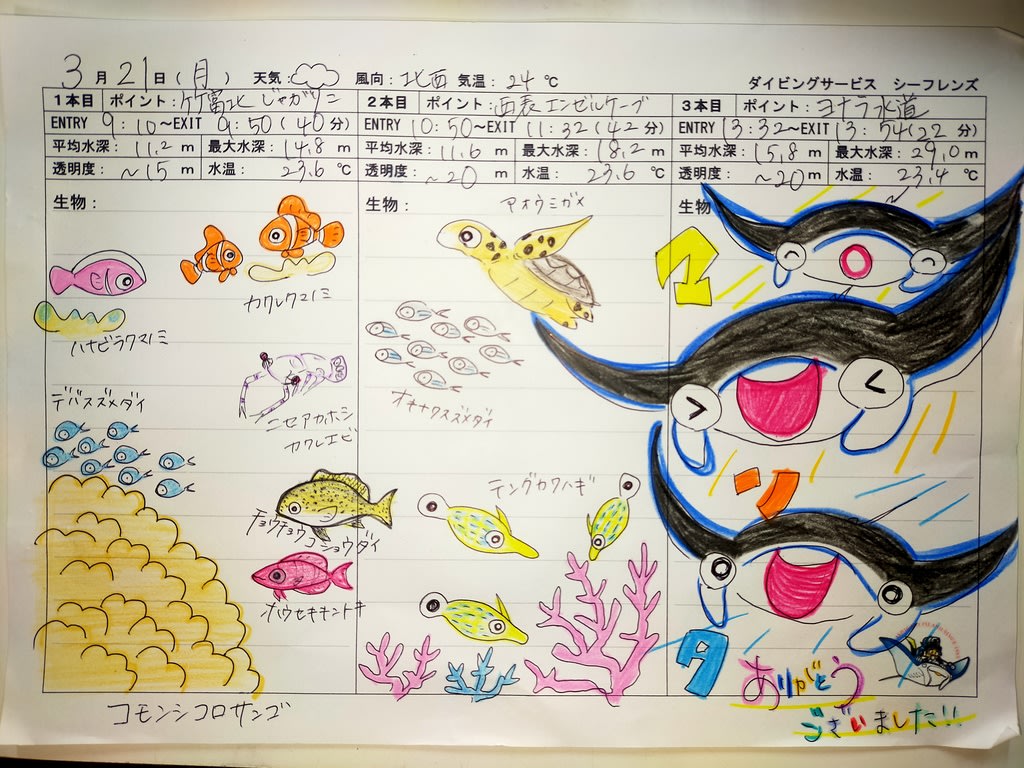 3月21日(月) 天気: 風向:北西 気温:24℃ ダイビングサービス シーフレンズ
1本目 ポイント:竹富北 じゃがりこ
ENTRY 9:10~EXIT 9:50(40分)
平均水深:11.2m 最大水深:14.8m
透明度:~15m 水温:23.6℃
生物:
カクレクマノミ
ハナビラクマノミ
デバスズメダイ
ニセアカホシ
カクレエビ
チョウチョウコショウダイ
ホウセキキントキ
コモンシコロサンゴ
2本目 ポイント:西表エンゼルケーブ
ENTRY 10:50~EXIT 11:32(42分)
平均水深:11.6m 最大水深:18.2m
透明度:~20m 水温:23.6℃
生物:
アオウミガメ
オキナワスズメダイ
テングカワハギ
3本目 ポイント:ヨナラ水道
ENTRY 13:32~EXIT 13:54(22分)
平均水深:15.8m 最大水深:29.0m
透明度:~20m 水温:23.4℃
生物
マ
ン
タ
ありがとう
ございました!!